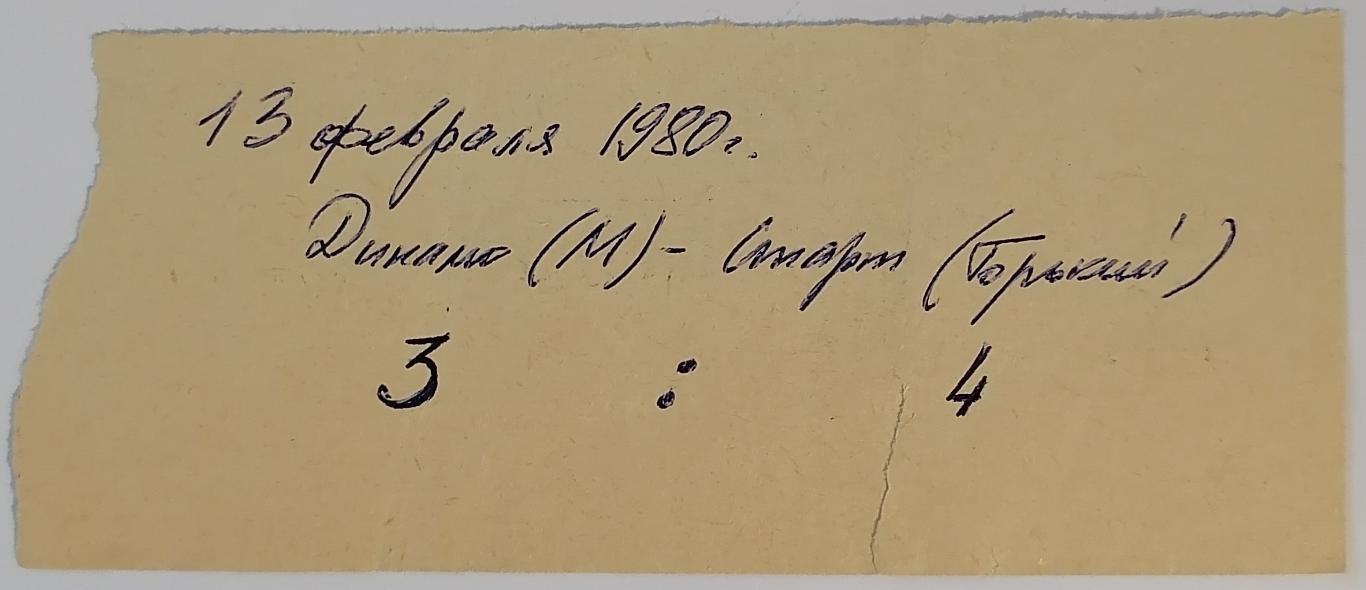 13 февраля 1980г.
Динамо (М) - Старт (Горький)
3 : 4